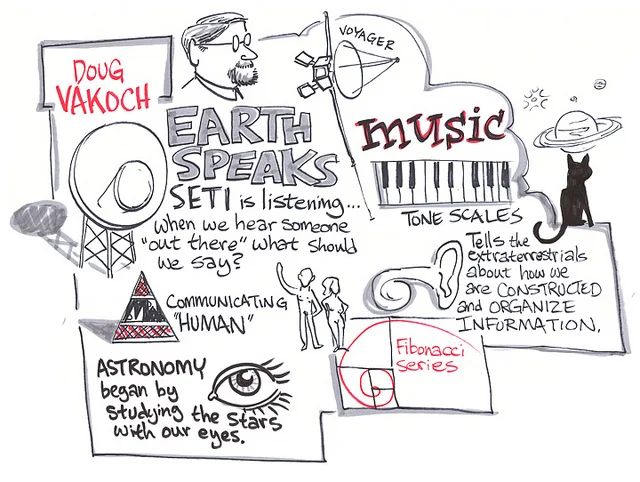 DOUG
VAKOCH
VOYAGER
EARTH
SPEAKS
SETI is listening...
when we hear someone
"out there" what should
we say?
music
TONE SCALES
Tells the
extraterrestrials
about how we
are CONSTRUCTED
and ORGANIZE
INFORMATION.
COMMUNICATING
"HUMAN"
Fibonacci
series
ASTRONOMY
began by
studying the stars
with our eyes.